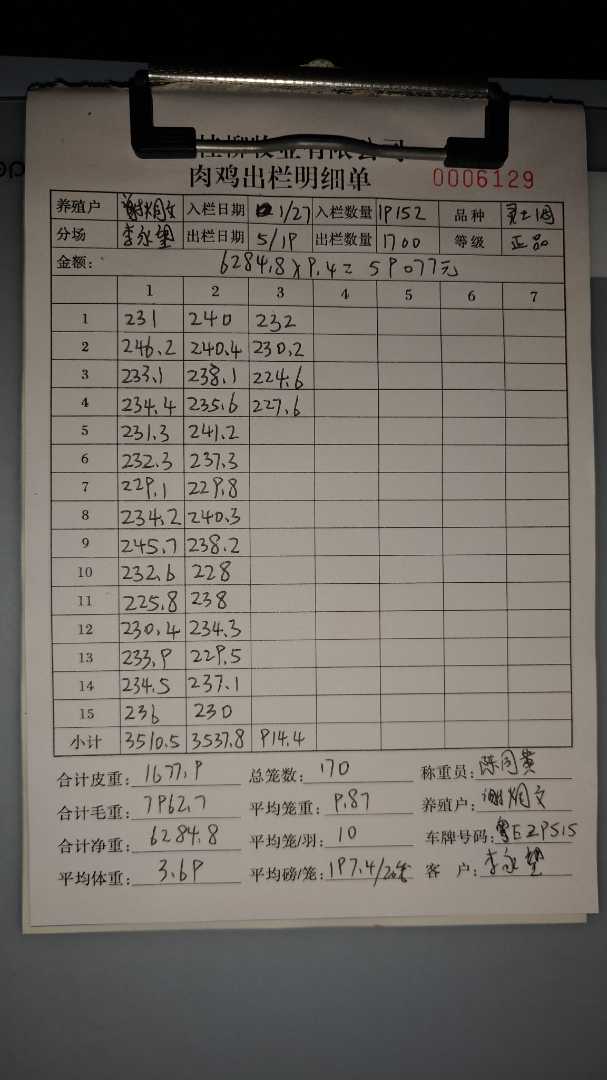 桂柳牧业有限公司
肉鸡出栏明细单 0006129
养殖户 谢炳文 入栏日期 1/27 入栏数量 19152 品种
分场 李永望 出栏日期 5/19 出栏数量 1700 等级 正品
金额: 6284.8×9.4=59077元
1 2 3 4 5 6 7
1 231 240 232
2 246.2 240.4 230.2
3 233.1 238.1 224.6
4 234.4 235.6 227.6
5 231.3 241.2
6 232.3 237.3
7 229.1 229.8
8 234.2 240.3
9 245.7 238.2
10 232.6 228
11 225.8 238
12 230.4 234.3
13 233.9 229.5
14 234.5 237.1
15 236 230
小计 3510.5 3537.8 914.4
合计皮重: 1677.9 总笼数: 170 称重员: 陈同黄
合计毛重: 7962.7 平均笼重: 9.87 养殖户: 谢炳文
合计净重: 6284.8 平均笼/羽: 10 车牌号码: 粤EZ9515
平均体重: 3.69 平均磅/笼: 197.4/ 客户: 李永望